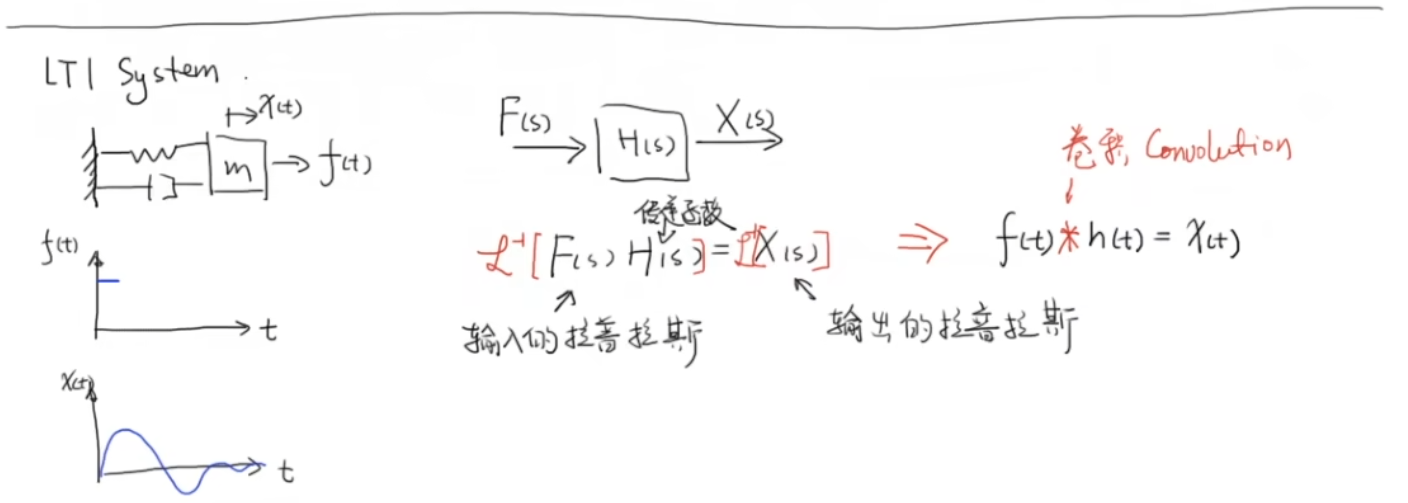 LTI System.
x(t)
m
f(t)
f(t)
t
x(t)
t
F(s)
H(s)
X(s)
传递函数
ℒ⁻¹[F(s) H(s)] = ℒ⁻¹[X(s)]
输入的拉普拉斯
输出的拉普拉斯
卷积, Convolution
⇒ f(t) * h(t) = x(t)